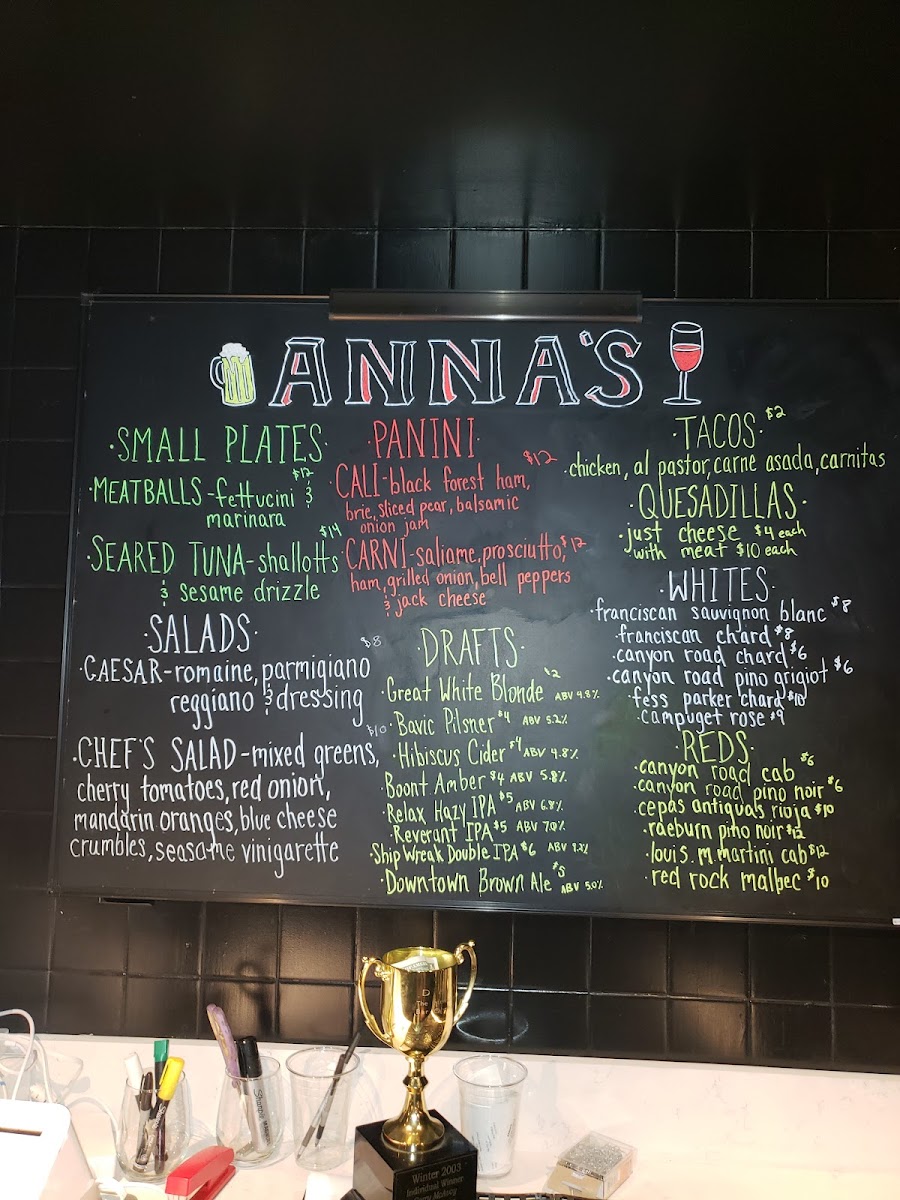 ANNA'S
·SMALL PLATES·
$12
·MEATBALLS-fettucini &
marinara
$14
·SEARED TUNA-shallotts
& sesame drizzle
·SALADS·
$8
·CAESAR-romaine, parmigiano
reggiano & dressing
$10
·CHEF'S SALAD-mixed greens,
cherry tomatoes, red onion,
mandarin oranges, blue cheese
crumbles, seasame vinigarette
·PANINI·
$12
CALI-black forest ham,
brie, sliced pear, balsamic
onion jam
CARNI-saliame, prosciutto, $12
ham, grilled onion, bell peppers
& jack cheese
·DRAFTS·
·Great White Blonde $2 ABV 4.8%
·Bavic Pilsner $4 ABV 5.2%
·Hibiscus Cider $4 ABV 4.8%
·Boont Amber $4 ABV 5.8%
·Relax Hazy IPA $5 ABV 6.8%
·Reverant IPA $5 ABV 7.0%
·Ship Wreak Double IPA $6 ABV
·Downtown Brown Ale ABV 5.0%
·TACOS· $2
·chicken, al pastor, carne asada, carnitas
·QUESADILLAS·
·just cheese $4 each
·with meat $10 each
·WHITES·
·franciscan sauvignon blanc $8
·franciscan chard $8
·canyon road chard $6
·canyon road pino grigiot $6
·fess parker chard $10
·campuget rose $9
·REDS·
·canyon road cab $6
·canyon road pino noir $6
·cepas antiquals rioja $10
·raeburn pino noir $12
·louis. m. martini cab $12
·red rock malbec $10
Sharpie
D
The
Winter 2003
Individual Winner